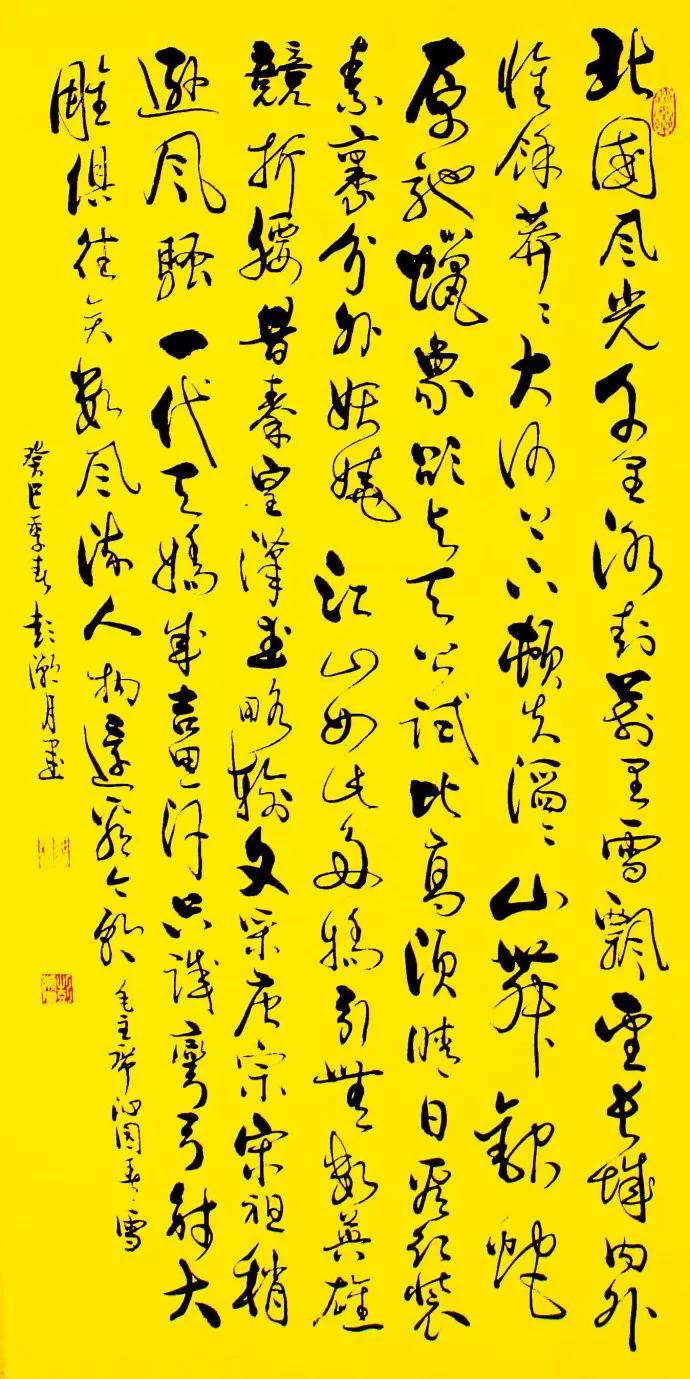 北國风光千里冰封萬里雪飘望长城内外
惟餘莽〻大河上下頓失滔〻山舞銀蛇
原驰蠟象欲与天公試比高須晴日看红装
素裹分外妖嬈江山如此多嬌引無数英雄
競折腰昔秦皇漢武略输文采唐宗宋祖稍
逊风騷一代天嬌成吉思汗只識彎弓射大
雕俱往矣数风流人物還看今朝 毛主席沁园春雪
癸巳季春彭月書